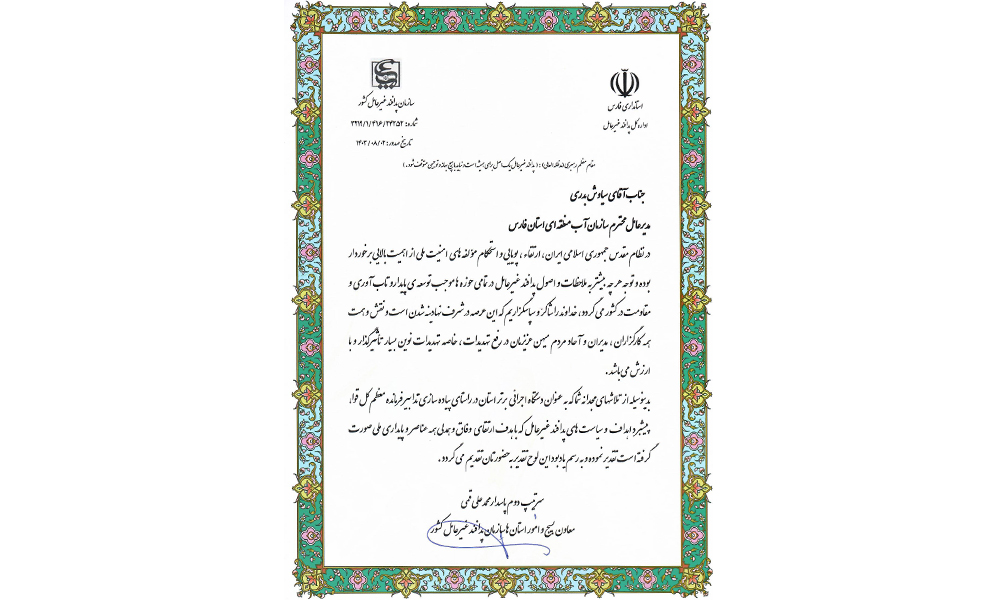 استانداری فارس
اداره کل پدافند غیرعامل
سازمان پدافند غیرعامل کشور
شماره: ۳۲۱۹/۱/۴۱۶/۲۴۲۵۲
تاریخ صدور: ۱۴۰۳/۰۸/۰۲
مقام معظم رهبری (مدظله العالی): (پدافند غیرعامل یک اصل برای همیشه است و نباید با هیچ بهانه و توجیهی متوقف شود.)
جناب آقای سیاوش بدری
مدیرعامل محترم سازمان آب منطقه ای استان فارس
در نظام مقدس جمهوری اسلامی ایران، ارتقاء، پویایی و استحکام مؤلفه های امنیت ملی از اهمیت بالایی برخوردار
بوده و توجه هر چه بیشتر به ملاحظات و اصول پدافند غیرعامل در تمامی حوزه ها موجب توسعه ی پایدار و تاب آوری و
مقاومت در کشور می گردد، خداوند را شاکر و سپاسگزاریم که این عرصه در شرف نهادینه شدن است و نقش و همت
همه کارگزاران، مدیران و آحاد مردم میهن عزیزمان در رفع تهدیدات، خاصه تهدیدات نوین بسیار تأثیرگذار و با
ارزش می باشد.
بدینوسیله از تلاشهای مجدانه شما که به عنوان دستگاه اجرائی برتر استان در راستای پیاده سازی تدابیر فرمانده معظم کل قوا،
پیشبرد اهداف و سیاست های پدافند غیرعامل که با هدف ارتقای وفاق و همدلی همه عناصر و پایداری ملی صورت
گرفته است تقدیر نموده و به رسم یادبود این لوح تقدیر به حضورتان تقدیم می گردد.
سرتیپ دوم پاسدار محمد علی قمی
معاون بسیج و امور استان ها سازمان پدافند غیرعامل کشور